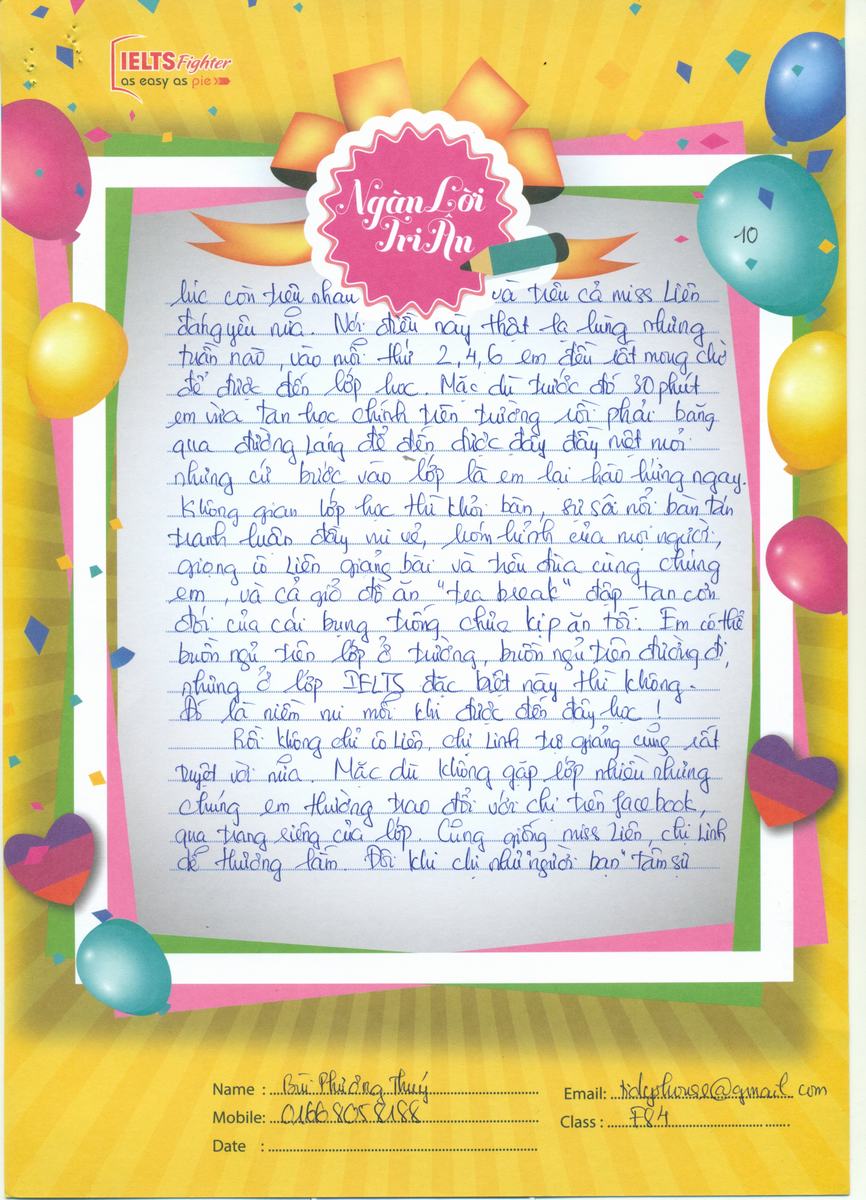 IELTS Fighter
as easy as pie
Ngàn Lời
Tri Ân
10
lúc còn trêu nhau và trêu cả miss Liên
đáng yêu nữa. Nói điều này thật lạ lùng nhưng
tuần nào, vào mỗi thứ 2,4,6 em đều rất mong chờ
để được đến lớp học. Mặc dù trước đó 30 phút
em vừa tan học chính trên trường rồi phải băng
qua đường Láng để đến được đây đầy mệt mỏi
nhưng cứ bước vào lớp là em lại hào hứng ngay.
Không gian lớp học thì khỏi bàn, sự sôi nổi bàn tán
tranh luận đầy vui vẻ, hóm hỉnh của mọi người,
giọng cô Liên giảng bài và trêu đùa cùng chúng
em, và cả giỏ đồ ăn "tea break" đập tan cơn
đói của cái bụng trống chưa kịp ăn tối. Em có thể
buồn ngủ trên lớp ở trường, buồn ngủ trên đường đi,
nhưng ở lớp IELTS đặc biệt này thì không.
Đó là niềm vui mỗi khi được đến đây học !
Rồi không chỉ cô Liên, chị Linh trợ giảng cũng rất
tuyệt vời nữa. Mặc dù không gặp lớp nhiều nhưng
chúng em thường trao đổi với chị trên facebook,
qua trang riêng của lớp. Cũng giống miss Liên, chị Linh
dễ thương lắm. Đôi khi chị như "người bạn" tâm sự
Name : Bùi Phương Thuý
Email: @gmail.com
Mobile: 01668058188
Class : F84
Date :